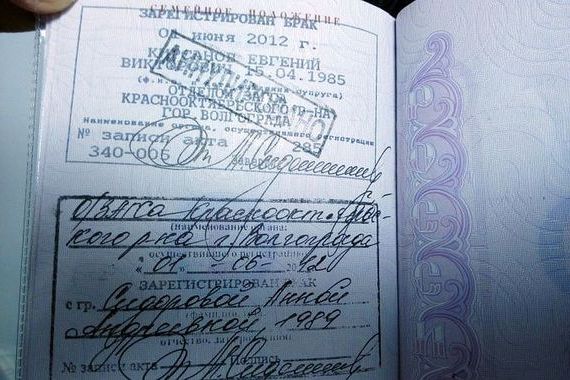 СЕМЕЙНОЕ ПОЛОЖЕНИЕ
ЗАРЕГИСТРИРОВАН БРАК
01 июня 2012 г.
ЕВГЕНИЙ
15.04.1985
ОТДЕЛОМ
КРАСНООКТЯБРЬСКОГО Р-НА
ГОР. ВОЛГОГРАДА
наименование органа, осуществившего регистрации
№ записи акта 285
340-006
О/ЗАГСа Краснооктябрьс-
кого р-на г. Волгограда
(наименование органа,
осуществившего регистрацию)
"01" 06 2012
ЗАРЕГИСТРИРОВАН БРАК
с гр. Сидоровой Анной
Андреевной, 1989
отчество, дата рождения
№ записи акта Подпись